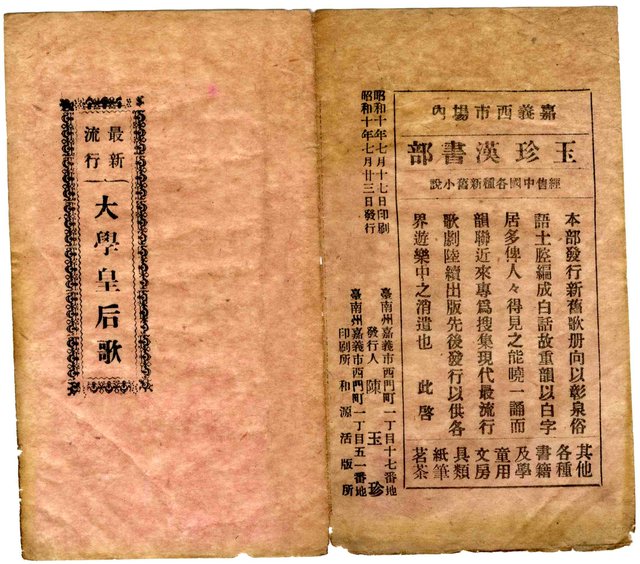 嘉義西市場內
玉珍漢書部
經售中國各種新舊小說
本部發行新舊歌册向以彰泉俗
語土腔編成白話故重韻以白字
居多俾人々得見之能曉一誦而
韻聯近來專爲搜集現代最流行
歌劇陸續出版先後發行以供各
界遊樂中之消遣也 此啓
其他
各種
書籍
及學
童用
文房
具類
紙筆
茗茶
昭和十年七月十七日印刷
昭和十年七月廿三日發行
臺南州嘉義市西門町一丁目十七番地
發行人 陳玉珍
臺南州嘉義市西門町一丁目五一番地
印刷所 和源活版所
最新
流行
大學皇后歌